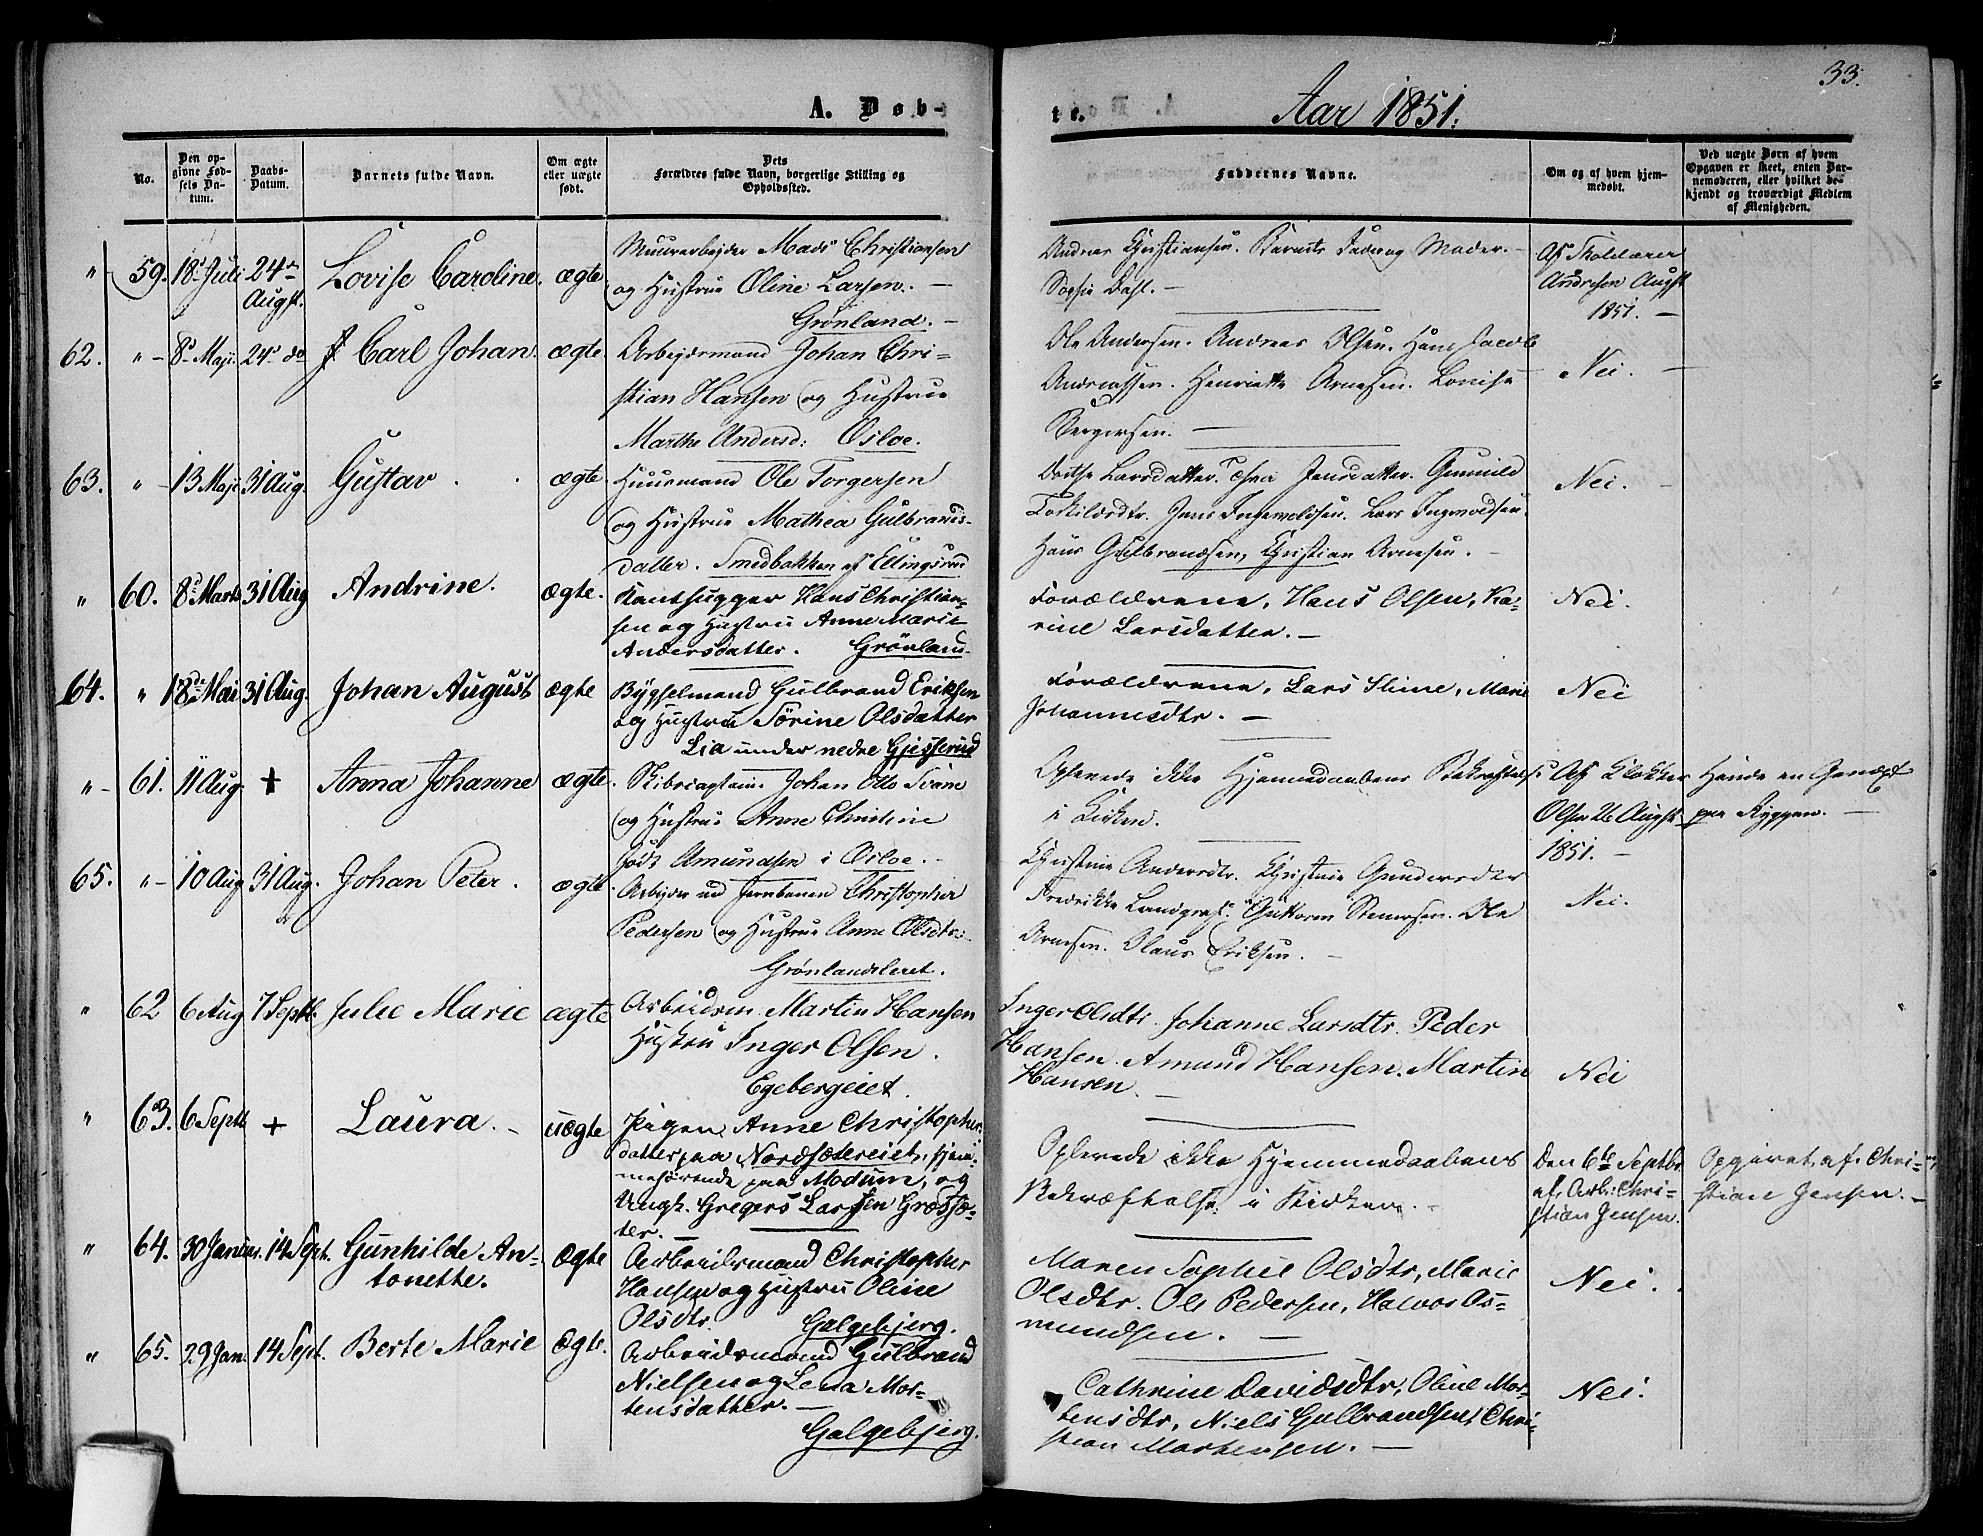 33.
A. Døb-
te.
Aar 1851.
No.
Den op-
givne Fød-
sels Da-
tum.
Daabs-
Datum.
Barnets fulde Navn.
Om ægte
eller uægte
født.
Dets
Forældres fulde Navn, borgerlige Stilling og
Opholdssted.
Faddernes Navne.
Om og af hvem hjem-
medøbt.
Ved uægte Børn af hvem
Opgaven er skeet, enten Bar-
nemoderen, eller hvilket be-
kjendt og troværdigt Medlem
af Menigheden.
" 59. 18 Juli 24de Augst. Lovise Caroline. ægte
Muurarbejder Mads Christiansen
og Hustrue Oline Larsen. —
Grønland. —
Andreas Christiansen. Barnets Fader og Moder. —
Sophie Dahl. —
Af
Andresen Augst
1851. —
62. " 8 Maji. 24 do Carl Johan. ægte.
Arbejdsmand Johan Chri-
stian Hansen og Hustrue
Marthe Andersd: Osloe.
Ole Andersen. Andreas Olsen. Hans Jacob
Andreassen. Henriette Arnesen. Lovise
Bergersen. —
Nei. —
63. " 13 Maji 31 Aug. Gustav. ægte
Huusmand Ole Torgersen
og Hustrue Mathea Gulbrands-
datter. Smedbakken af Ellingsrud
Berthe Larsdatter. Thea Jensdatter. Gunnild
Jens Ingevoldsen. Lars Ingevoldsen.
Hans Gulbrandsen, Christian Arnesen. —
Nei. —
" 60. 8 Marts 31 Aug Andrine. ægte.
Kanthugger Hans Christian-
sen og Hustru Anne Marie
Andersdatter. Grønland
Forældrene, Hans Olsen, Ka-
rine Larsdatter. —
Nei.
64. " 18de Mai 31 Aug. Johan August ægte
Bygselmand Gulbrand Eriksen
og Hustru Sørine Olsdatter
Lia under nedre Gjesserud
Forældrene, Lars Stine, Marie
Johannesdtr. —
Nei
" 61. 11 Aug. + Anna Johanne ægte.
Johan Otto
og Hustrue Anne Christine
født Amundsen i Osloe. —
Oplevede ikke Hjemmedaabens Bekræftelse
i Kirken.
Af Klokker
Olsen 26 Augst
1851. —
Havde en
paa Ryggen. —
65. " 10 Aug 31 Aug. Johan Peter. ægte.
Arbejder ved Jernbanen Christopher
Pedersen og Hustrue Anne Olsdtr.
Grønlandsleret.
Christine Andersdtr. Christine Gundersdtr
Fredrikke Landgraf. Guttorm Stenersen. Ole
Arnesen. Olaus Eriksen. —
Nei.
" 62 6 Aug 7 Septb. Julie Marie ægte
Arbeidsm. Martin Hansen
Hustru Inger Olsen.
Egebergeiet.
Inger Olsdtr. Johanne Larsdtr. Peder
Hansen. Amund Hansen. Martin
Hansen. —
Nei
" 63. 6 Septb + Laura. — uægte
Pigen Anne Christopher-
datter paa Nordsætereiet, hjem-
mehørende paa Modum, og
Ungk. Gregers Larsen Grøsjø-
ter. —
Oplevede ikke Hjemmedaabens
Bekræftelse i Kirken. —
Den 6te Septbr
af Arb: Chri-
stian Jensen.
Opgivet af Chri-
stian Jensen. —
" 64. 30 Januar. 14 Sept. Gunhilde An-
tonette. Ægte
Arbeidsmand Christopher
Hansen og Hustru Oline
Olsdtr. Galgebjerg.
Maren Sophie Olsdtr, Marie
Olsdtr. Ole Pedersen, Halvor Os-
mundsen. —
Nei.
" 65. 29 Jan. 14 Sept. Berte Marie Ægte.
Arbeidsmand Gulbrand
Nielsen og Lena Mor-
tensdatter. —
Galgebjerg.
Cathrine Davidsdtr, Oline Mor-
tensdtr, Niels Gulbrandsen, Chri-
stian Mortensen. —
Nei.